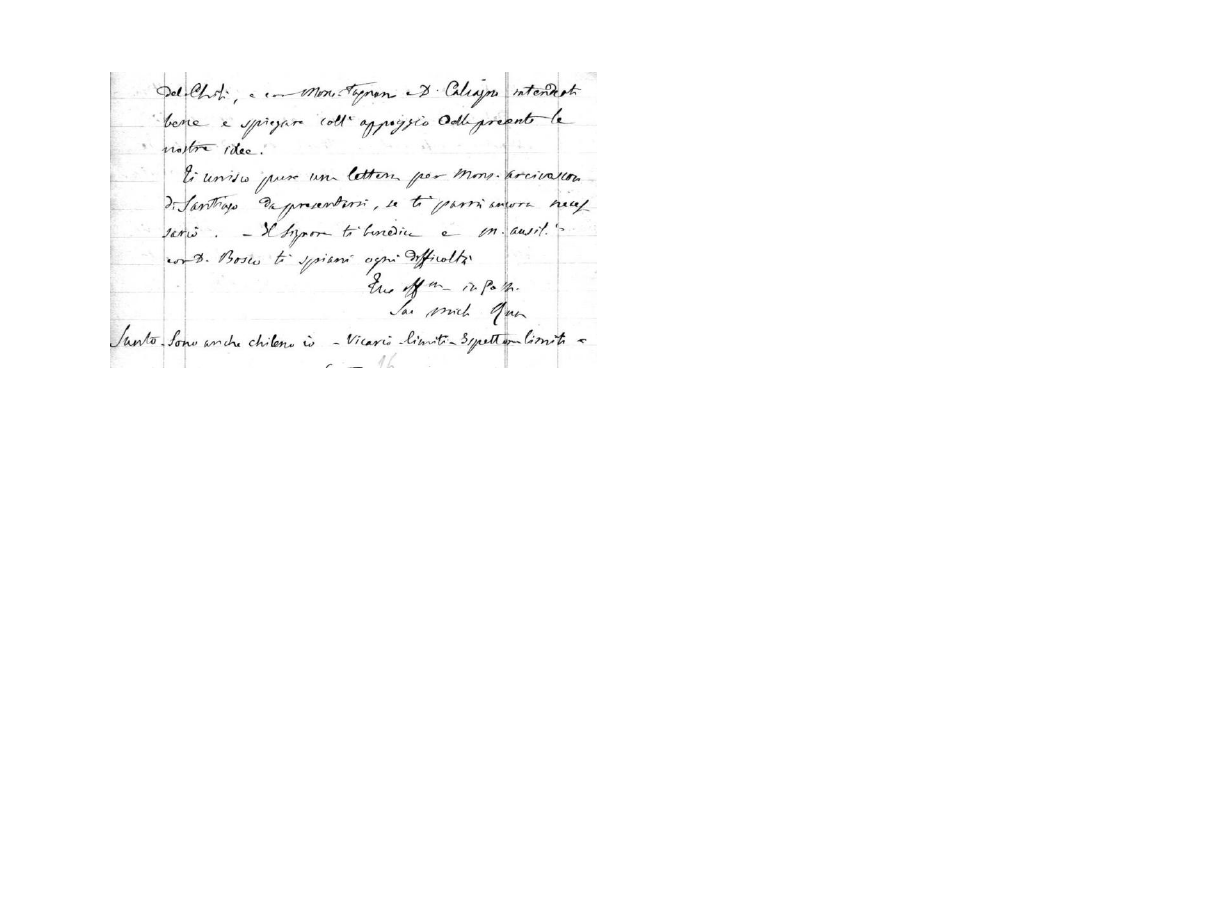 Del Chilì, e con Mons. Fagnano e D. Calcagno intenderti
bene e spiegare coll' appoggio della presente le
nostre idee.
Ti unisco pure una lettera per Mons. Arcivescovo
di Santiago da presentarsi, se ti parrà ancora neces
sario. - Il Signore ti benedica e M. Ausil.
con D. Bosco ti spiani ogni difficoltà
Tuo aff in G.
Sac Mich Rua
Sono anche chileno io - Vicario - limiti - Ispettore limiti e
16